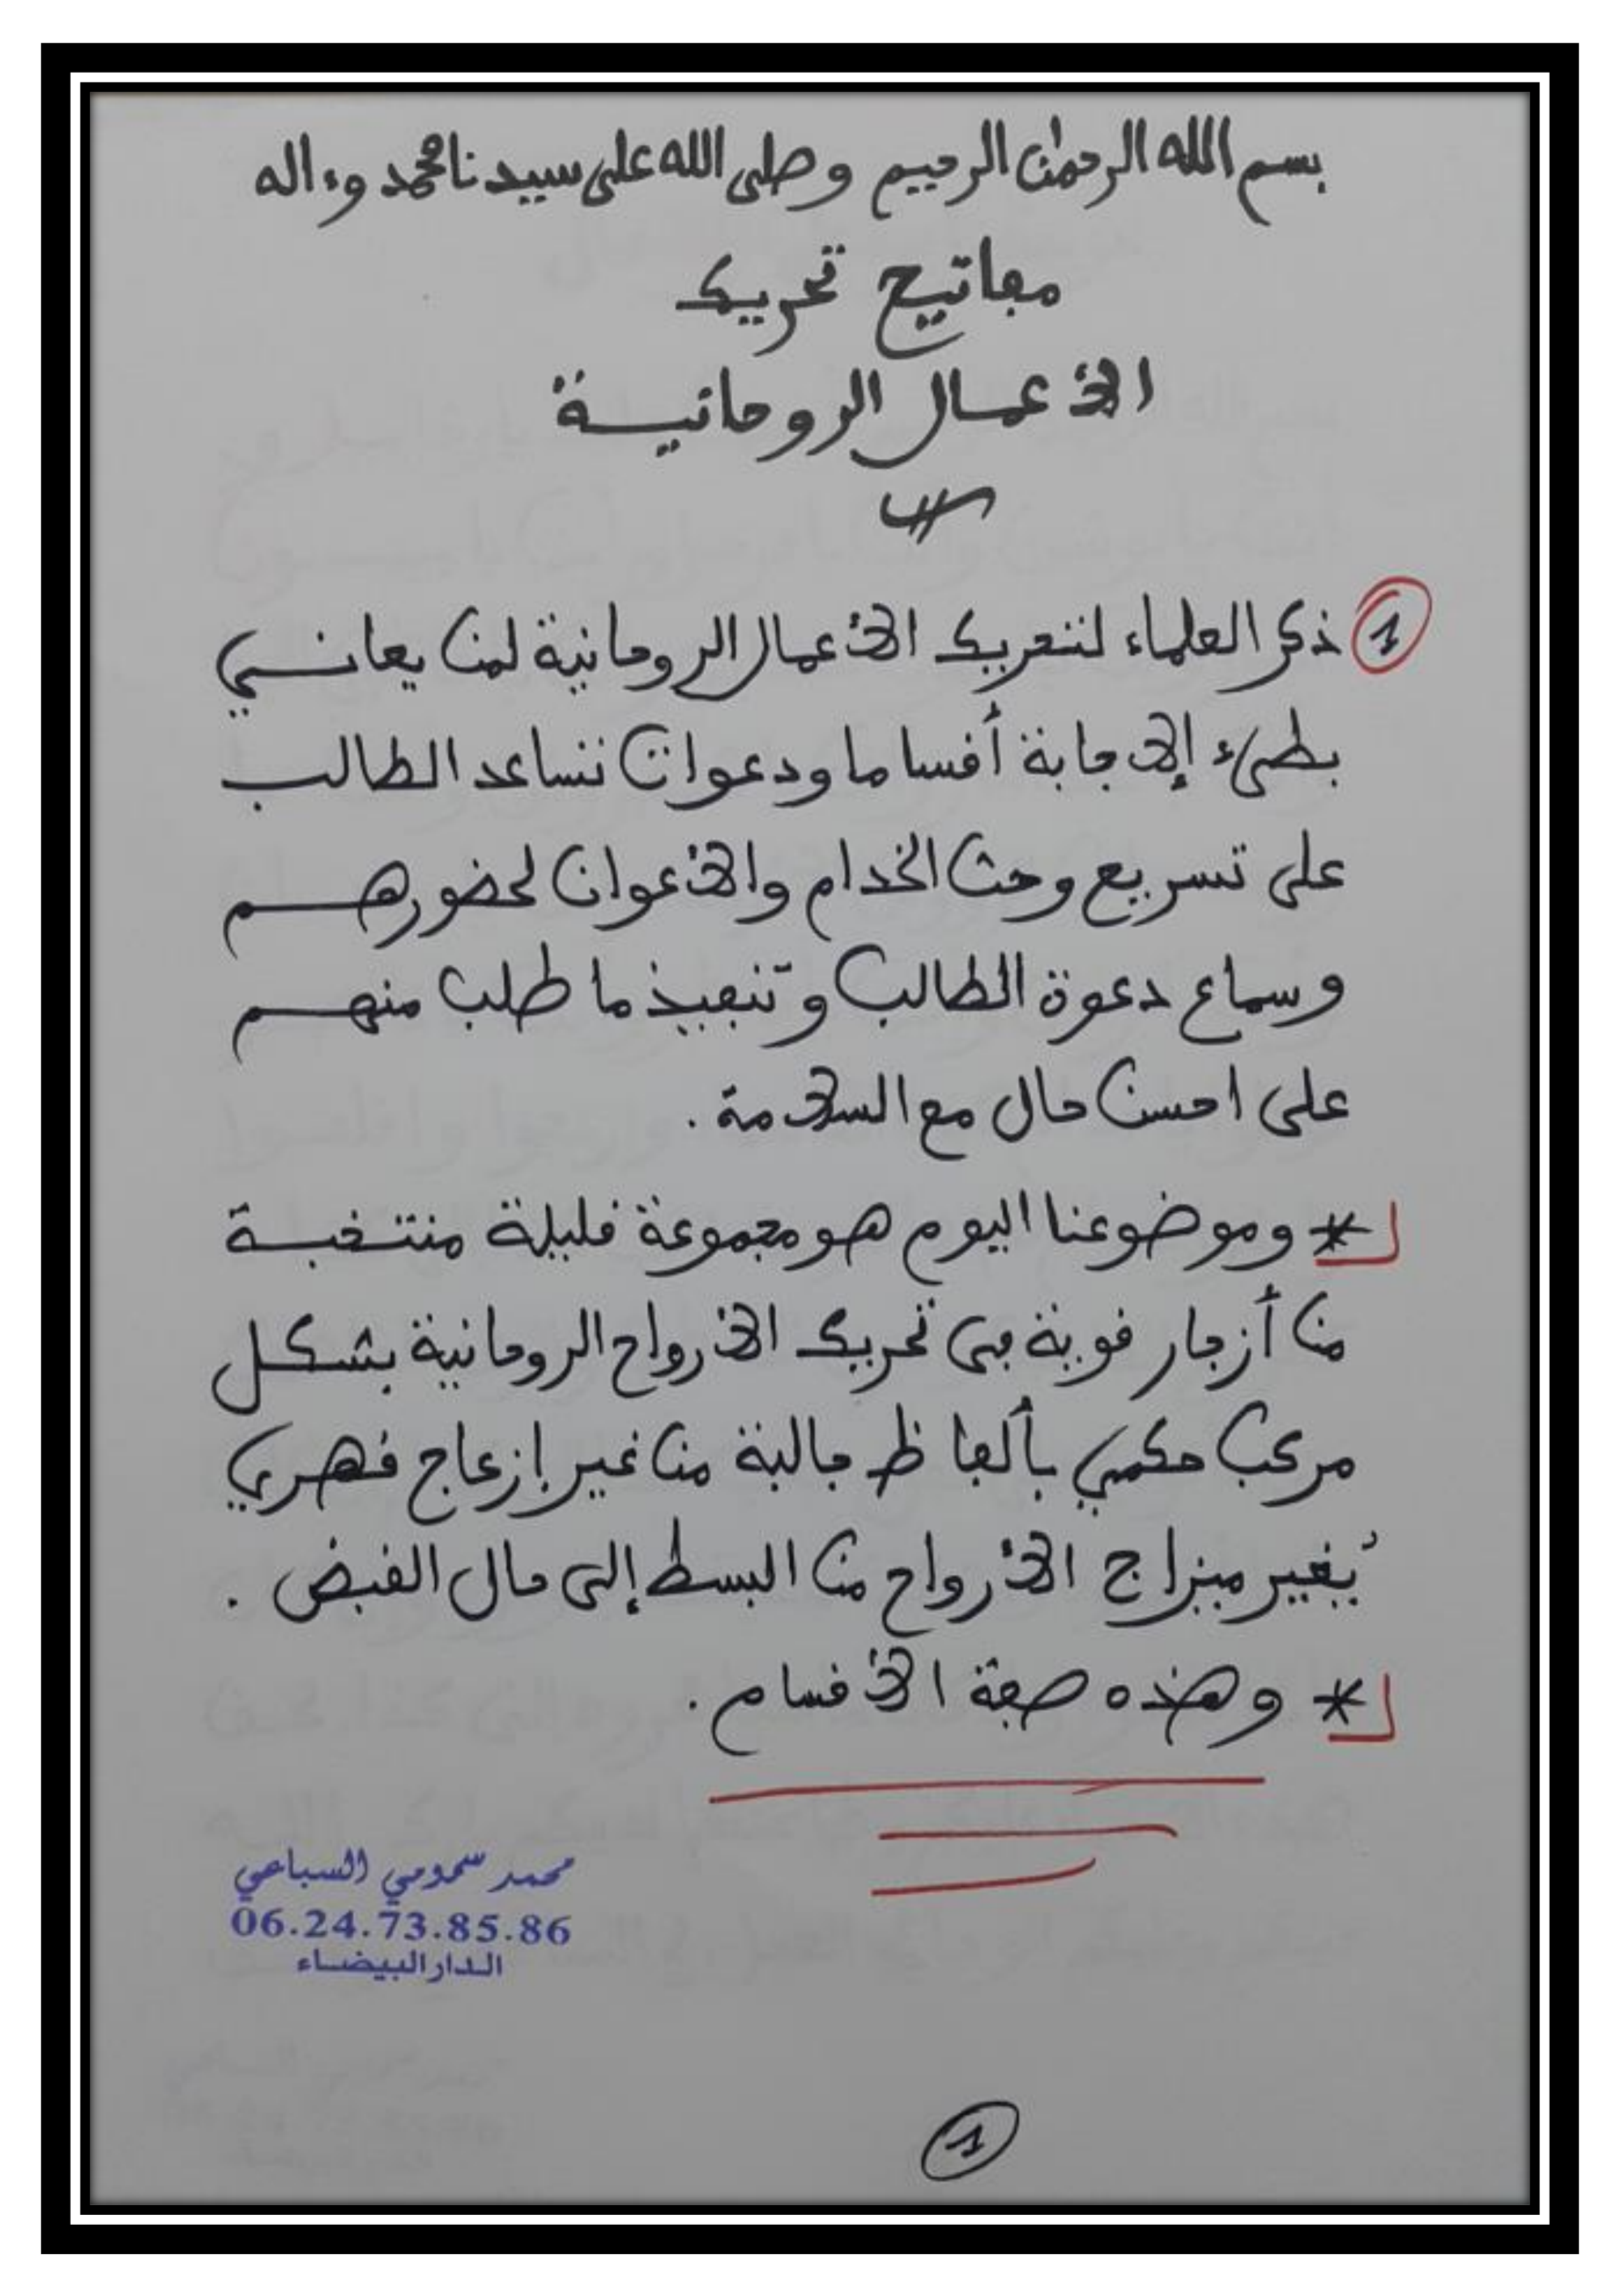 بسم الله الرحمٰن الرحيم وصلى الله على سيدنا محمد وءاله
مفاتيح تحريك
الأعمال الروحانية
1 ذكر العلماء لتحريك الأعمال الروحانية لمن يعاني
بطيء إلاجابة أقساما ودعوات تساعد الطالب
على تسريع وحث الخدام والأعوان لحضورهم
وسماع دعوة الطالب وتنفيذ ما طلب منهم
على احسن حال مع السلامة .
* وموضوعنا اليوم هو مجموعة قليلة منتخبة
من أزجار قوية في تحريك الأرواح الروحانية بشكل
مركب حكمي بألفاظ جالبة من غير إزعاج قهري
يُغير ميزاج الأرواح من البسط إلى حال القبض .
* وهذه صفة الأقسام .
محمد سمومي السباعي
06.24.73.85.86
الدار البيضاء
1